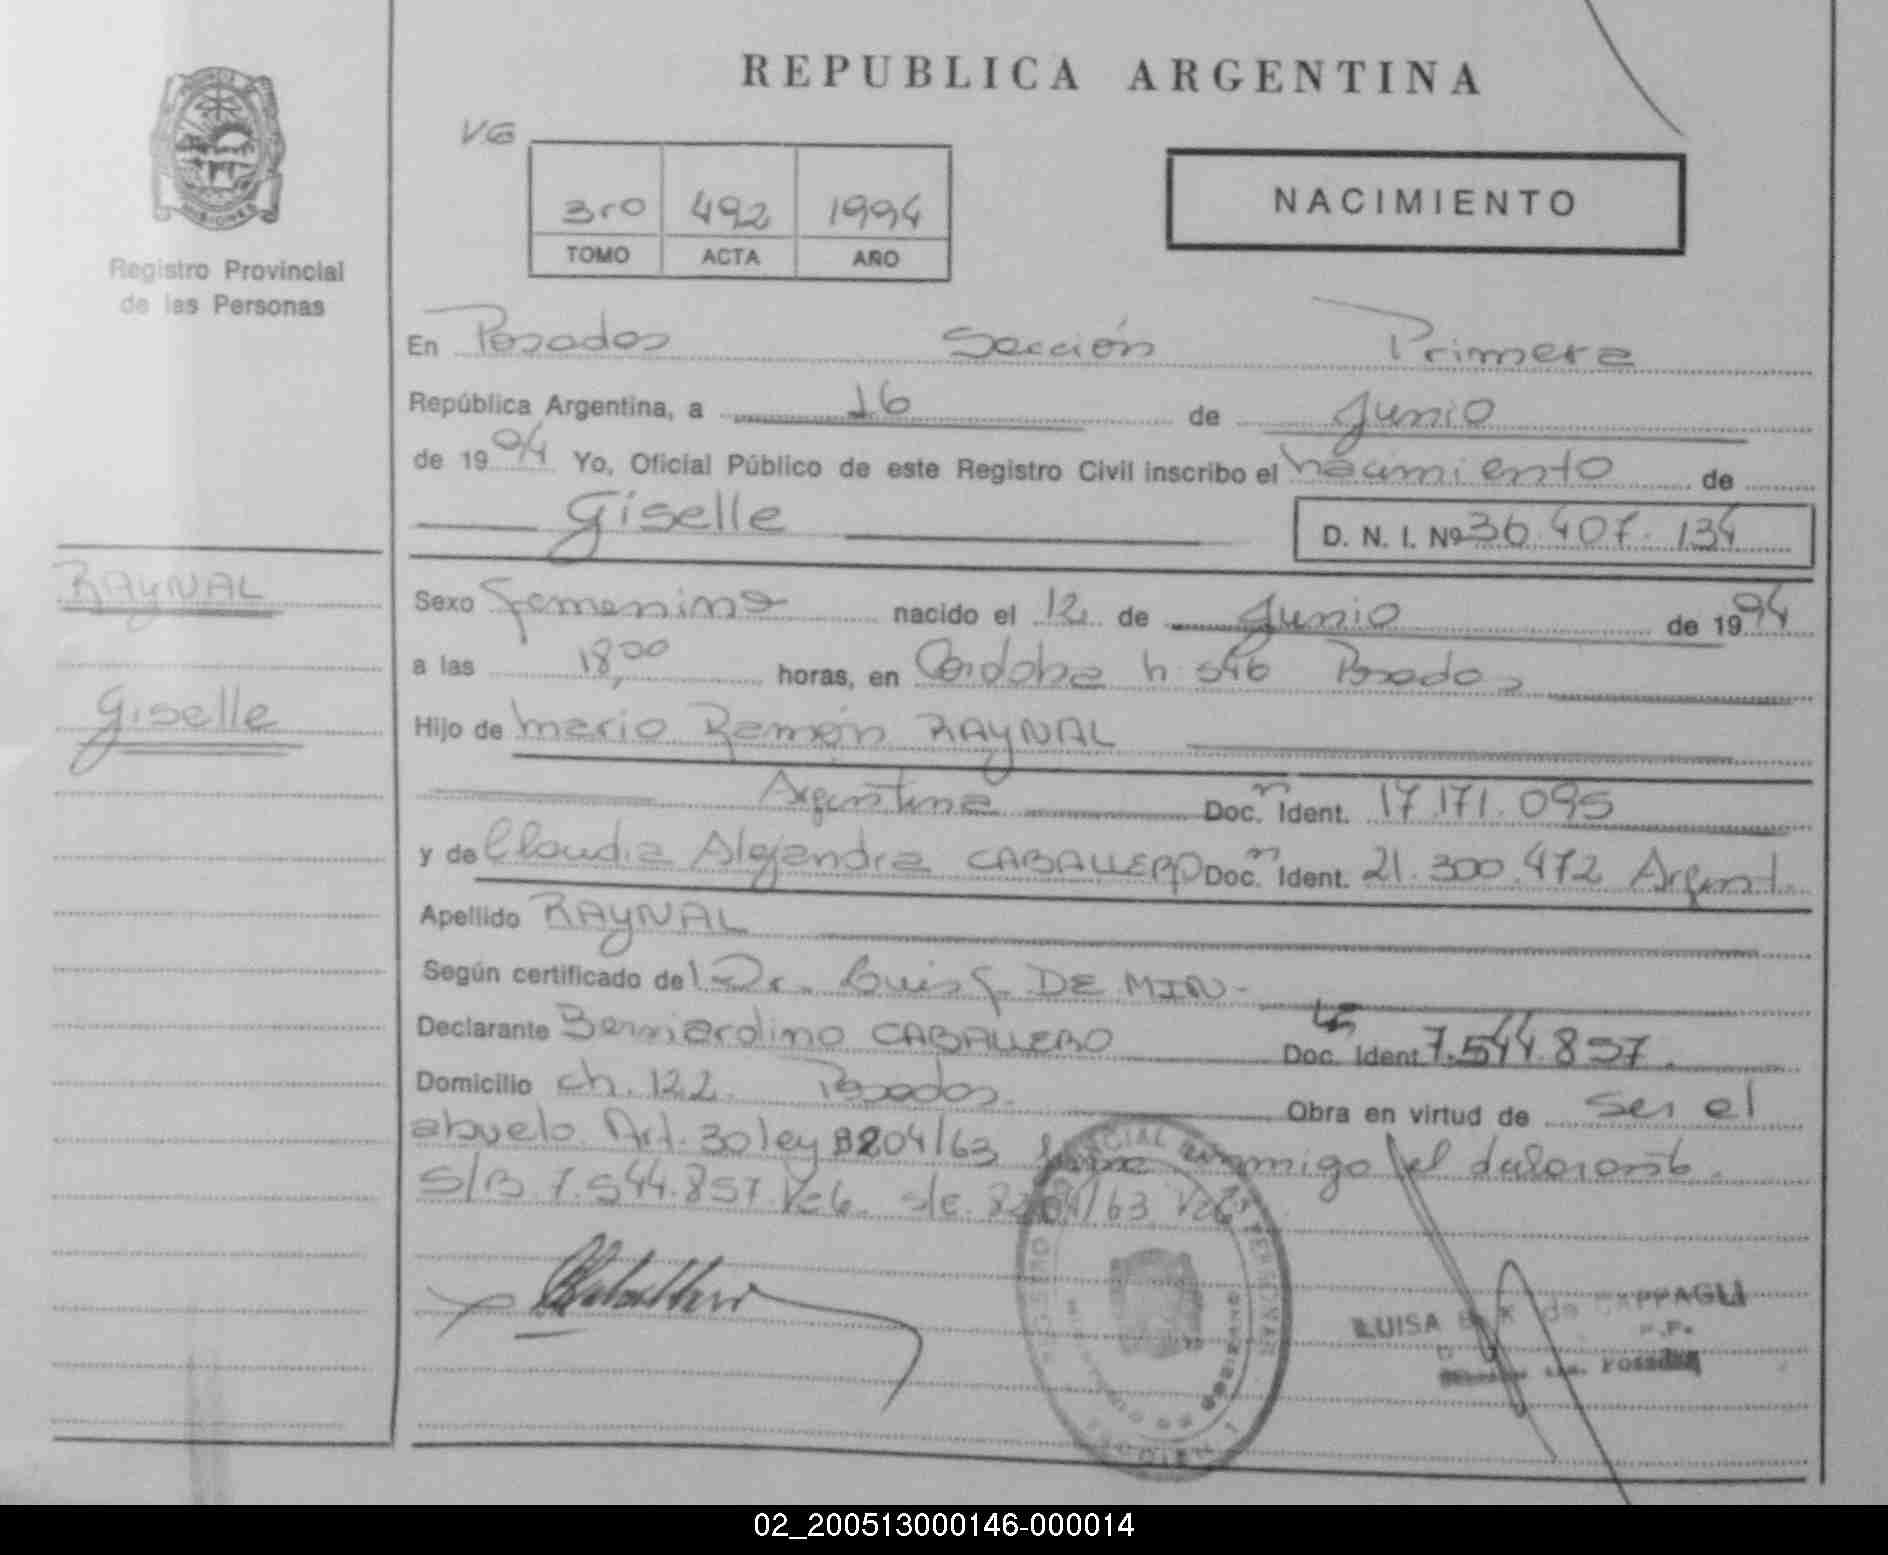 REPUBLICA ARGENTINA
VG
3ro 492 1994
TOMO ACTA AÑO
NACIMIENTO
MISIONES
Registro Provincial
de las Personas
En Posadas Sección Primera
República Argentina, a 16 de Junio
de 1994 Yo, Oficial Público de este Registro Civil inscribo el nacimiento de
Giselle
D. N. I. Nº 36.407.134
RAYNAL
Giselle
Sexo Femenino nacido el 12 de Junio de 1994
a las 18,00 horas, en Córdoba n 546 Posadas
Hijo de Mario Ramón RAYNAL
Argentina Doc. Ident. 17.171.095
y de Claudia Alejandra CABALLERO Doc. Ident. 21.300.472 Argent.
Apellido RAYNAL
Según certificado del Dr. Luis F. DE MIN-
Declarante Bernardino CABALLERO Doc. Ident. 7.544.857.
Domicilio ch. 122. Posadas. Obra en virtud de ser el
abuelo Art. 30 ley 8204/63 firma conmigo el declarante.
S/B 7.544.857 Vale. s/e. 8204/63 Vale
LUISA de CAPPAGLI
Posadas
02_200513000146-000014